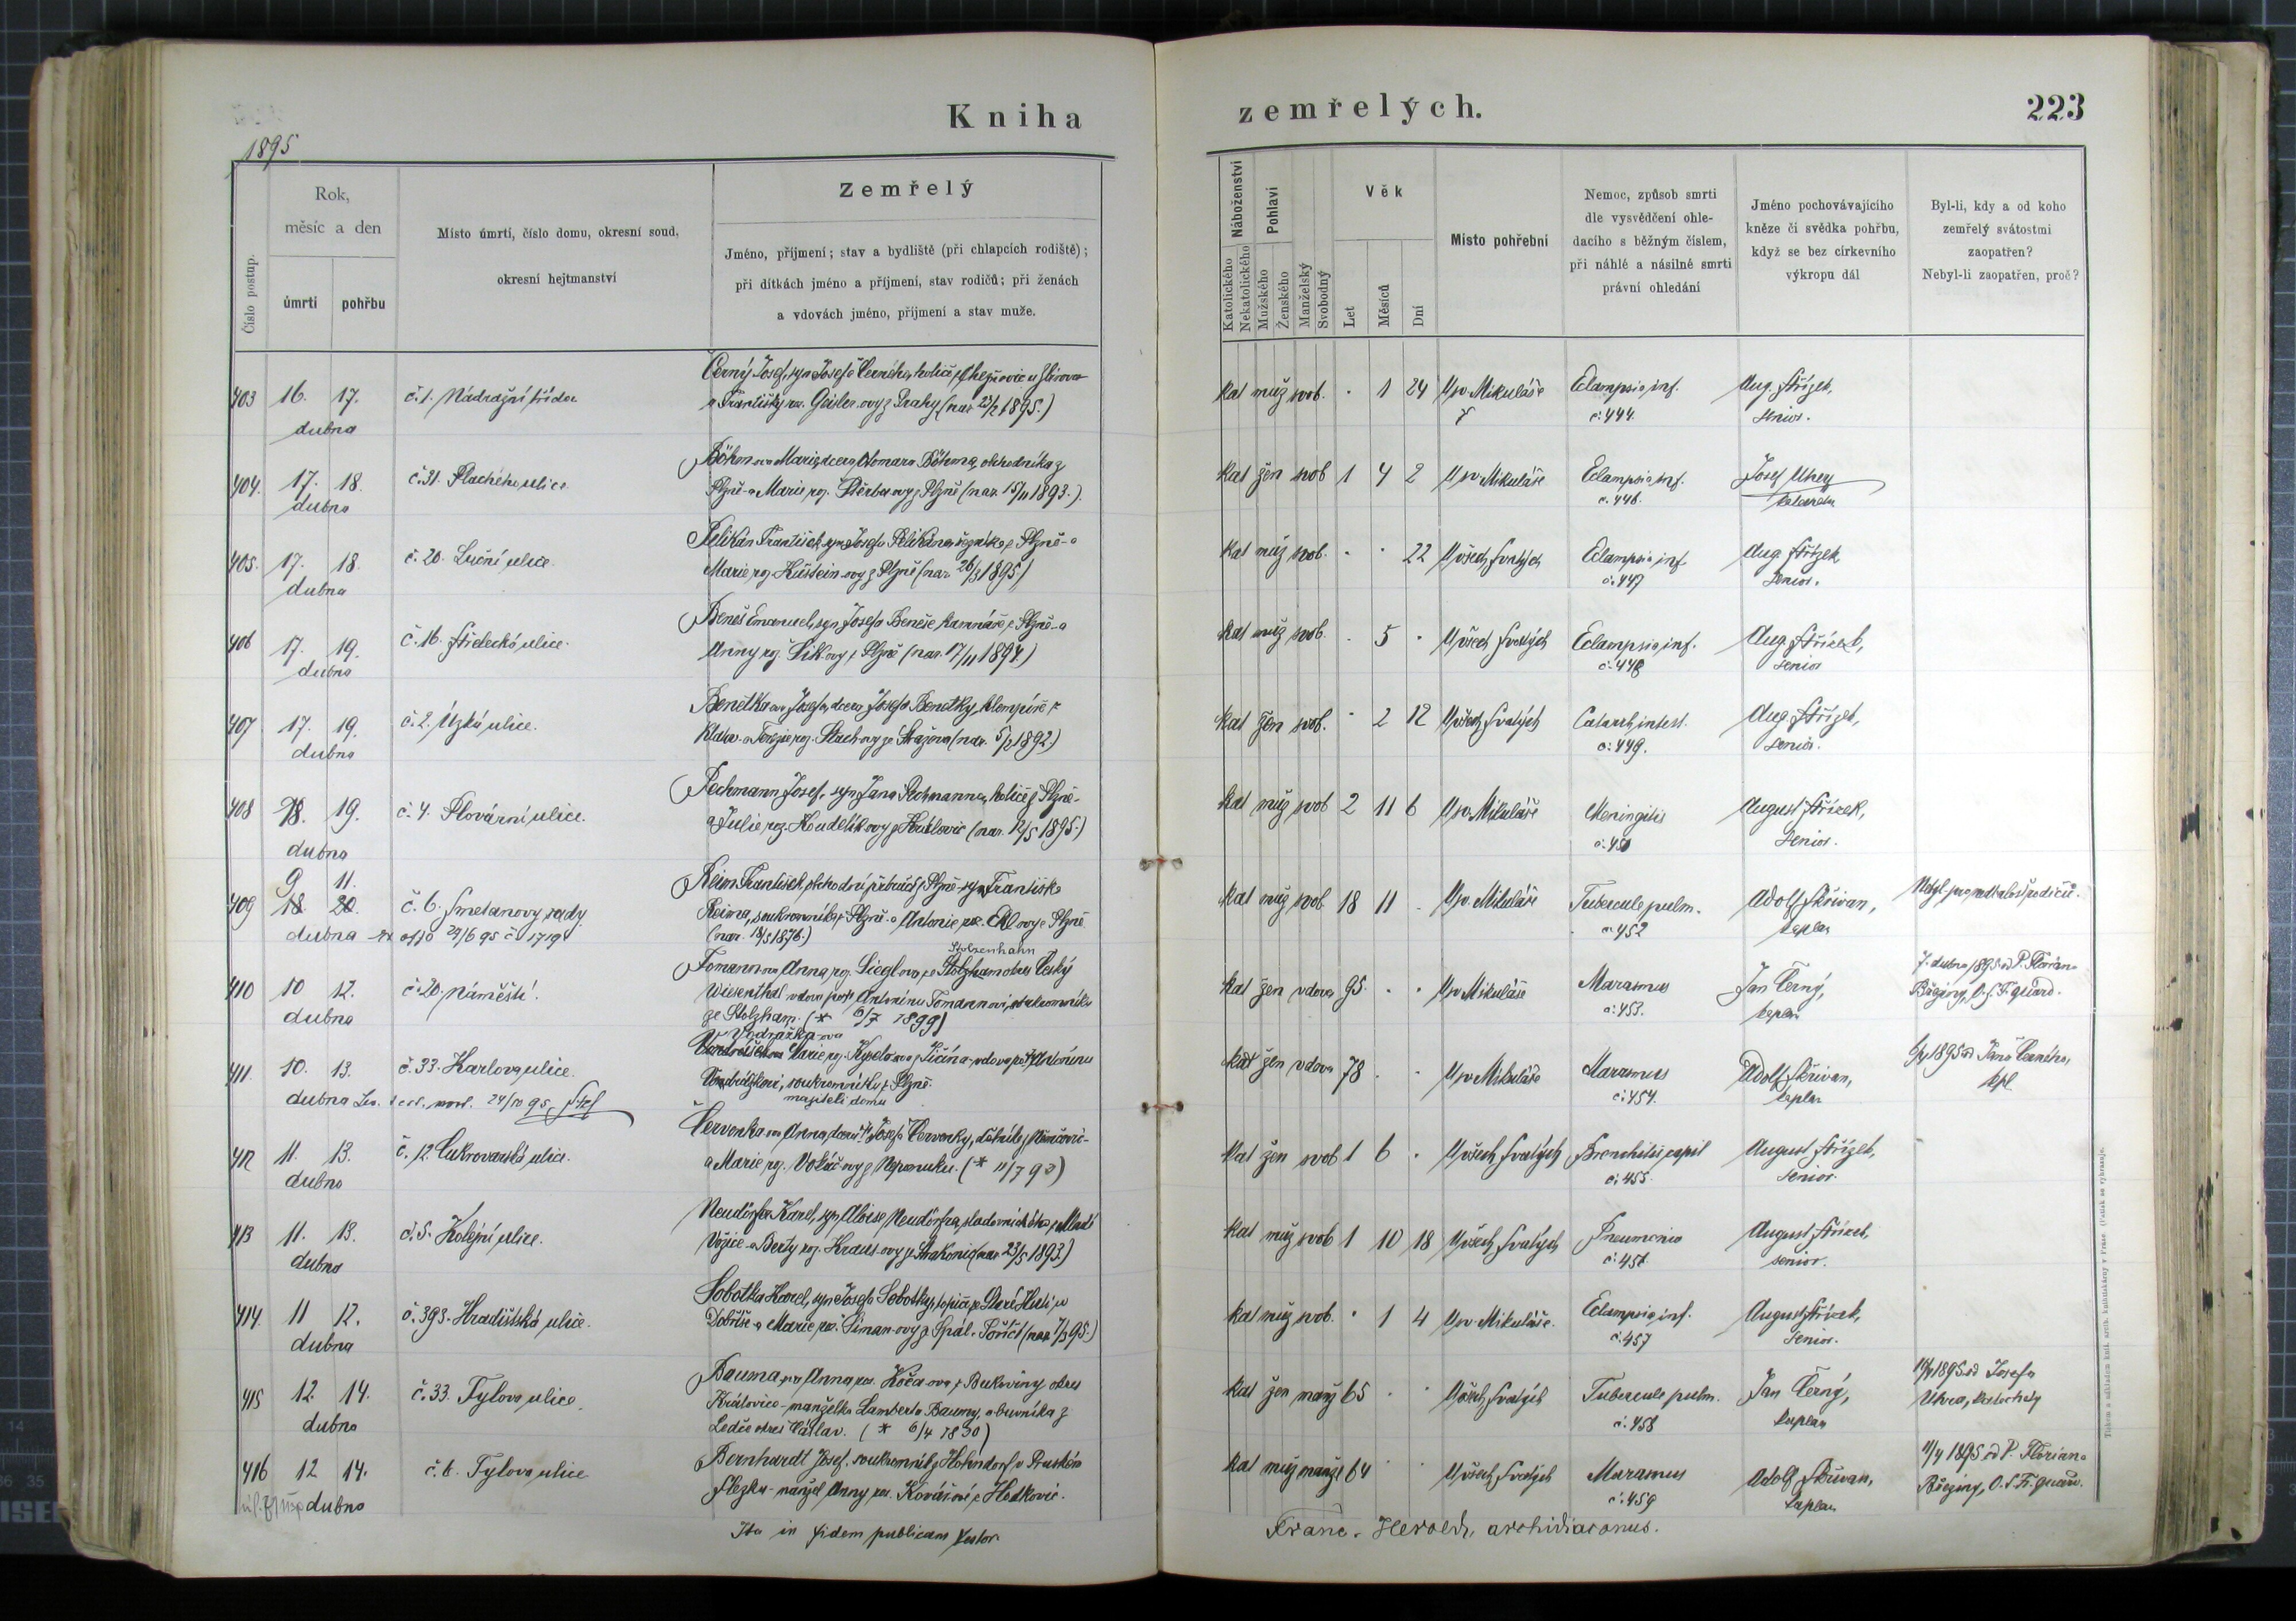 Kniha
zemřelých.
223
1895
Číslo postup.
Rok,
měsíc a den
úmrtí
pohřbu
Místo úmrtí, číslo domu, okresní soud,
okresní hejtmanství
Zemřelý
Jméno, příjmení; stav a bydliště (při chlapcích rodiště);
při dítkách jméno a příjmení, stav rodičů; při ženách
a vdovách jméno, příjmení a stav muže.
Náboženství
Katolického
Nekatolického
Pohlaví
Mužského
Ženského
Manželský
Svobodný
Věk
Let
Měsíců
Dní
Místo pohřební
Nemoc, způsob smrti
dle vysvědčení ohle-
dacího s běžným číslem,
při náhlé a násilné smrti
právní ohledání
Jméno pochovávajícího
kněze či svědka pohřbu,
když se bez církevního
výkropu dál
Byl-li, kdy a od koho
zemřelý svátostmi
zaopatřen?
Nebyl-li zaopatřen, proč?
403 16. 17. dubna č. 1. Nádražní třída
Černý Josef, syn Josefa Černého, holiče
a Františky roz. z Prahy (nar. 23/2 1895.)
kat muž svob. . 1 24 U sv. Mikuláše Eclampsia inf. č. 444. Aug. Střízek, senior.
404. 17. 18. dubna č. 31. Plachého ulice
Böhmova Marie, dcera Otomara Böhma, obchodníka z
Plzně a Marie roz. Štěrbovy z Plzně (nar. 15/11 1893.)
kat žen svob 1 4 2 U sv. Mikuláše Eclampsia inf. č. 446. Josef
405. 17. 18. dubna č. 20. Luční ulice.
Pelikán František, syn Josefa Pelikána, řezníka z Plzně a
Marie roz. z Plzně (nar. 26/3 1895)
kat muž svob. . . 22 U všech Svatých Eclampsia inf č. 447 Aug Střízek senior.
406 17. 19. dubna č. 16. Střelecká ulice.
Beneš Emanuel, syn Josefa Beneše, kamnáře z Plzně a
Anny roz. z Plzně (nar. 17/11 1894.)
kat muž svob. . 5 . U všech Svatých Eclampsia inf. č. 448 Aug. Střízek, senior
407 17. 19. dubna č. 2. Úzká ulice.
Benetkova Josefa, dcera Josefa Benetky, klempíře z
Klatov a Terezie roz. (nar. 5/2 1892.)
kat žen svob. . 2 12 U všech Svatých Catarrh intest. č. 449. Aug. Střízek, senior.
408 18. 19. dubna č. 4. Plovární ulice.
Pechmann Josef, syn Jana Pechmanna, holiče z Plzně
a Julie roz. Koudelíkovy (nar. 12/5 1895.)
kat muž svob 2 11 6 U sv. Mikuláše Meningitis č. 450 August Střízek, senior.
409 9 11. 18 20. dubna č. 6. Smetanovy sady.
29/6 95 č. 1719
Reim František, obchodní příručí z Plzně, syn Františka
Reima, soukromníka z Plzně a Antonie roz. z Plzně
(nar. 18/5 1876.)
kat muž svob 18 11 . U sv. Mikuláše Tubercule pulm. č. 452 Adolf Skřivan, kaplan Nebyl pro nedbalost rodičů.
410 10 12. dubna č. 20. náměstí.
Stolzenhahn
Tomanova Anna, roz. Sieglova okres Český
Wiesenthal, vdova po Antonínu Tomannovi, soukromníku
ze Stolzham. (* 6/7 1899)
kat žen vdova 95. . . U sv. Mikuláše Marasmus č. 453. Jan Černý, kaplan 7. dubna 1895 od P. Floriana
Březiny, O. S. F. guard.
411. 10. 13. dubna č. 33. Karlova ulice.
24/10 95
Vodrážka-ova
Marie roz. z Jičína, vdova po Antonínu
soukromníku z Plzně.
majiteli domu
kat žen vdova 78 . . U sv. Mikuláše Marasmus č. 454. Adolf Skřivan, kaplan 1895 od Jana Černého, kpl.
412 11. 13. dubna č. 12. Cukrovarská ulice.
Červenkova Anna, dcera Josefa Červenky, dělníka
a Marie roz. z Nepomuku. (*
kat žen svob 1 6 . U všech Svatých Bronchitis capil č. 455. August Střízek, senior.
413 11. 13. dubna č. 5. Kolejní ulice.
Neudörfer Karel, syn Aloise Neudörfra, sladovnického z Mladé
Vožice a Berty roz. Kraus-ovy ze Strakonic (nar. 23/5 1893.)
kat muž svob 1 10 18 U všech Svatých Pneumonia č. 456. August Střízek, senior.
414. 11 12. dubna č. 393. Hradišťská ulice.
Sobotka Karel, syn Josefa Sobotky, topiče ze Staré Huti u
Dobříše a Marie roz. Šiman-ovy z Spál. Poříčí (nar. 7/3 95.)
kat muž svob. . 1 4 U sv. Mikuláše. Eclampsia inf. č. 457 August Střízek, senior.
415 12. 14. dubna č. 33. Tylova ulice.
Baumova Anna roz. Kočova z Bukoviny okres
Královice, manželka Lamberta Baumy, obuvníka z
Ledče okres Čáslav. (* 6/4 1830)
kat žen manž 65 . . U všech Svatých Tubercule pulm. č. 458 Jan Černý, kaplan 1895 od Josefa
416 12 14. dubna č. 6. Tylova ulice
Bernhardt Josef, soukromník z Hohndorf v Pruském
Slezku, manžel Anny roz. Kovářové z Hodkovic.
kat muž manžel 64 . . U všech Svatých Marasmus č. 459 Adolf Skřivan, kaplan 11/4 1895 od P. Floriana
Březiny, O. S. Fr. guard.
Ita in fidem publicam testor.
Franc. Herold, archidiaconus.